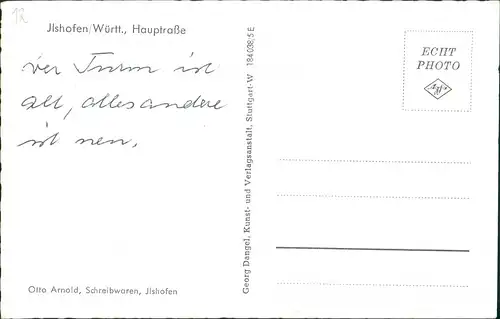 Jlshofen/Württ., Hauptraße
der Turm ist
alt, alles andere
ist neu.
Otto Arnold, Schreibwaren, Jlshofen
Georg Dangel, Kunst- und Verlagsanstalt, Stuttgart-W 184038/5 E
ECHT
PHOTO